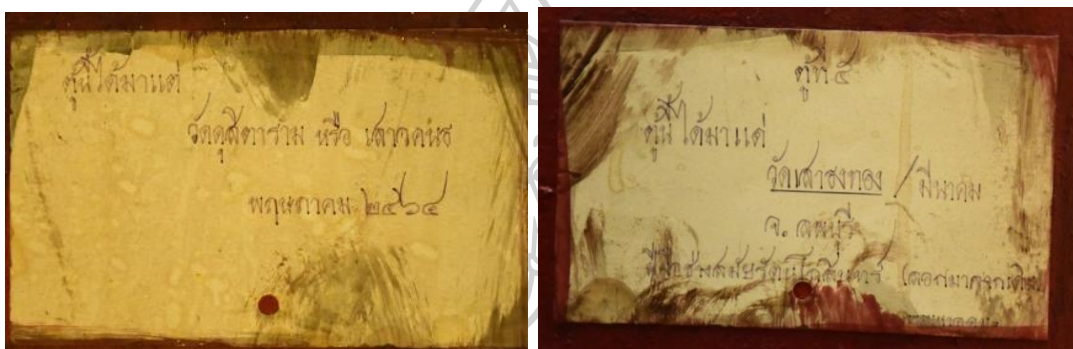 ตู้นี้ได้มาแต่
วัดดุสิดาราม หรือ เสาวคนธ
พฤษภาคม ๒๔๖๔
ตู้ที่ ๕
ตู้นี้ ได้มาแต่
วัดเสาธงทอง / มีนาคม
จ. ลพบุรี
ฝีมือช่างสมัยรัตนโกสินทร์